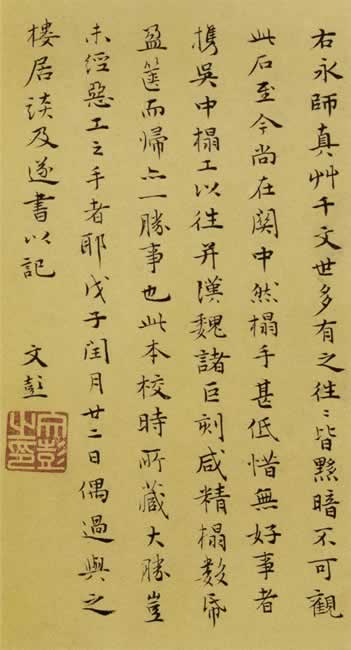 右永師真艸千文世多有之往〻皆黟暗不可觀
此石至今尚在関中然榻手甚低惜無好事者
携吳中榻工以往并漢魏諸巨刻咸精榻数帋
盈篋而帰亦一勝事也此本校時所藏大勝豈
未經惡工之手者耶戊子閏月廿二日偶過與之
樓居談及遂書以記
文彭
文彭之印